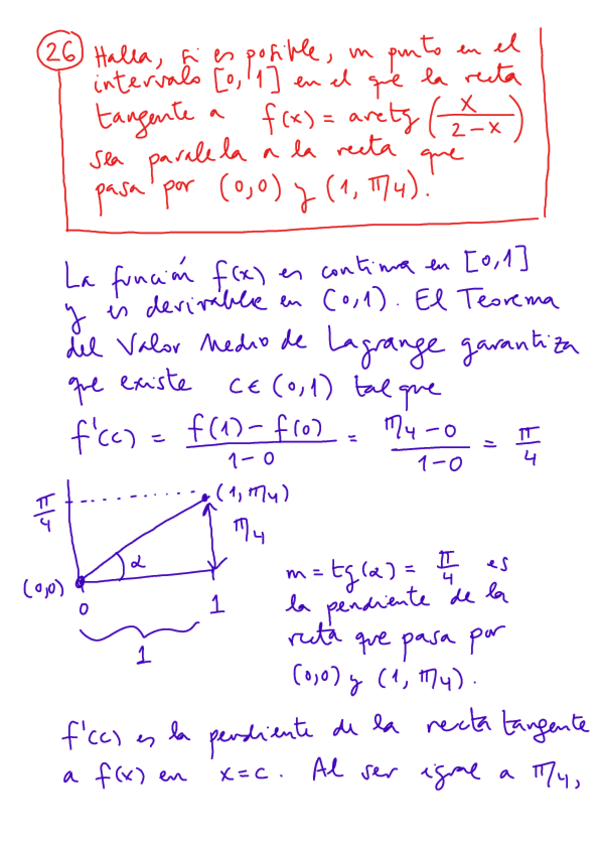 26 Halla, si es posible, un punto en el
intervalo [0,1] en el que la recta
tangente a f(x) = arctg (x/(2-x))
sea paralela a la recta que
pasa por (0,0) y (1, π/4).
La función f(x) es continua en [0,1]
y es derivable en (0,1). El Teorema
del Valor Medio de Lagrange garantiza
que existe c ∈ (0,1) tal que
f'(c) = (f(1) - f(0))/(1-0) = (π/4 - 0)/(1-0) = π/4
π/4 (1, π/4)
π/4
α
(0,0) 0 1
1
m = tg(α) = π/4 es
la pendiente de la
recta que pasa por
(0,0) y (1, π/4).
f'(c) es la pendiente de la recta tangente
a f(x) en x=c. Al ser igual a π/4,